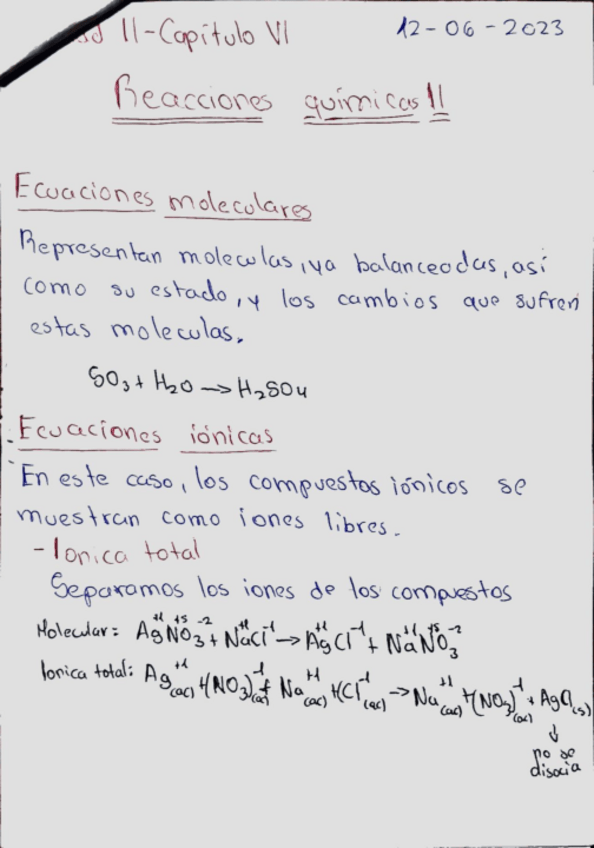 II-Capítulo VI 12-06-2023
Reacciones químicas II
Ecuaciones moleculares
Representan moleculas, ya balanceadas, así
como su estado, y los cambios que sufren
estas moleculas.
SO₃ + H₂O → H₂SO₄
Ecuaciones iónicas
En este caso, los compuestos iónicos se
muestran como iones libres.
- Ionica total
Separamos los iones de los compuestos
Molecular: Ag⁺¹N⁺⁵O₃⁻² + Na⁺¹Cl⁻¹ → Ag⁺¹Cl⁻¹ + Na⁺¹N⁺⁵O₃⁻²
Ionica total: Ag⁺¹(ac) + (NO₃)⁻¹(ac) + Na⁺¹(ac) + (Cl⁻¹(ac) → Na⁺¹(ac) + (NO₃)⁻¹(ac) + AgCl(s)
↓
no se
disocia